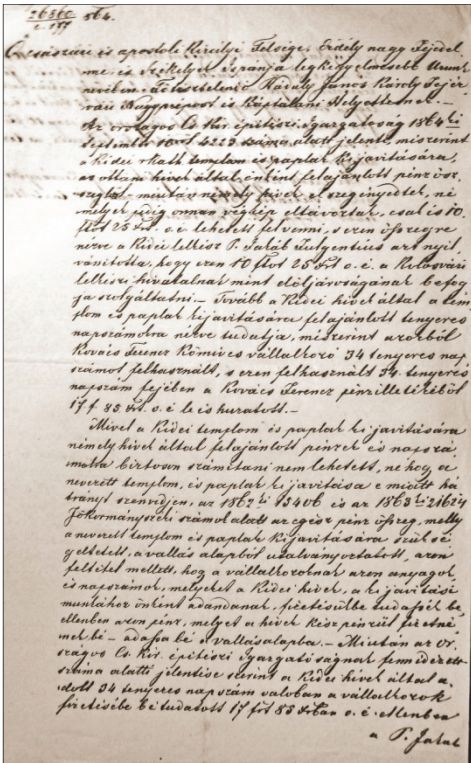 26560 564.
A császári és apostoli Királyi Felsége, Erdély nagy Fejedel
me és Székelyek ispánja legkegyelmesebb Urunk
nevében: Főtisztelendő Kádály János Károly Fejér
vári Nagyprépost és Káptalani Helyettesnek.
Az országos Cs. Kir. építészi igazgatóság 1864 ki
September szám alatt jelenti, miszerint
a kidei rkath templom és paplak kijavitására,
az ottani hivek által önként felajánlott pénz ösz
szegből – miután némely hivek elszegényedtek, né
melyek pedig onnan végkép eltávoztak, csak is 10.
ftot 25 xrt o. é. lehetett felvenni, s ezen összegre
nézve a Kidei lelkész P. Jakab Fulgentius azt nyil
vánitotta, hogy ezen 10 ftot 25 xrt o. é. a Kolosvári
lelkészi hivatalnak mint előljáróságának be fog
ja szolgáltatni – Tovább a Kidei hivek által a tem
plom és paplak kijavitására felajánlott tenyeres
napszámokra nézve tudatja, miszerint azokból
Kovács Ferencz kőmives vállalkozó 34 tenyeres nap
számot felhasznált, s ezen felhasznált 34 tenyeres
napszám fejében a Kovács Ferencz pénzilletékéből
17 f 85 xrt. o. é. le is huzatott. –
Mivel a Kidei templom és paplak kijavitására
némely hivek által felajánlott pénzek és napszá
mokra biztosan számitani nem lehetett, nehogy a
nevezett templom, és paplak kijavitása e miatt há
trányt szenvedjen, az 1862 ki 15406 és az 1863 ki 21624
Főkormányszéki számok alatt az egész pénz összeg, melly
a nevezett templom és paplak kijavitására szüksé
geltetett, a vallás alapból utalványoztatott, azon
feltétel mellett, hogy a vállalkozóknak azon anyagok,
és napszámok, melyeket a Kidei hivek, a kijavitási
munkához önként adandanak, fizetésükbe tudassék be,
ellenben azon pénz, melyet a hivek kész pénzül fizetné
nek bé – adassa bé a vallásalapba. – Miután az or
szágos Cs. Kir. építészi igazgatóságnak fennidézett
száma alatti jelentése szerint a Kidei hivek által a
dott 34 tenyeres napszám valóban a vállalkozók
fizetésébe bétudatott 17 frt 85 xrban o. é. ellenben
a P. Jakab